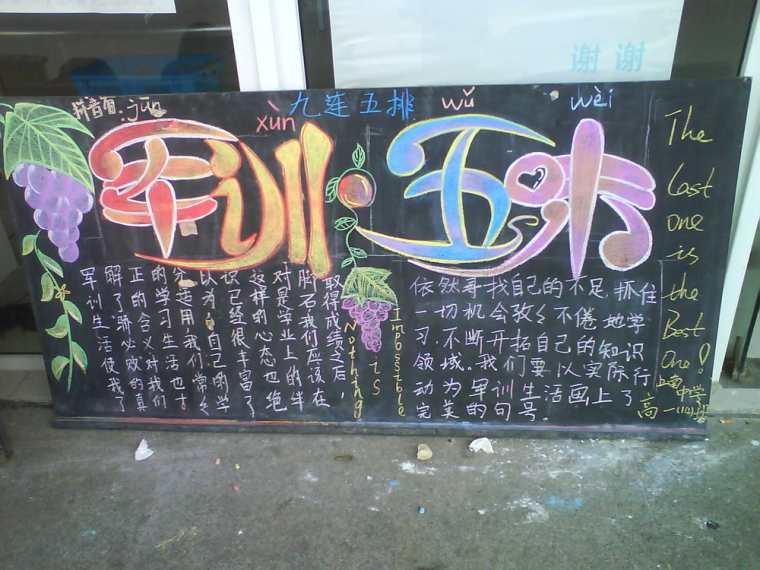 谢谢
jūn
xùn
九连五排
wǔ
wèi
军训
五味
军训生活使我了
解了骄必败的真
正的含义对我们
的学习生活也十
分适用,我们常々
以为,自己的学
识已经很丰富了
这样的心态也绝
对是学业上的绊
脚石我们应该在
取得成绩之后,
Nothing
is
Impossible
依然 找自己的不足,抓住
一切机会孜々不倦地学
习,不断开拓自己的知识
领域。我们要以实际行
动为军训生活画上了
完美的句号。
The
Last
one
is
the
Best
One!
中学
高一
班